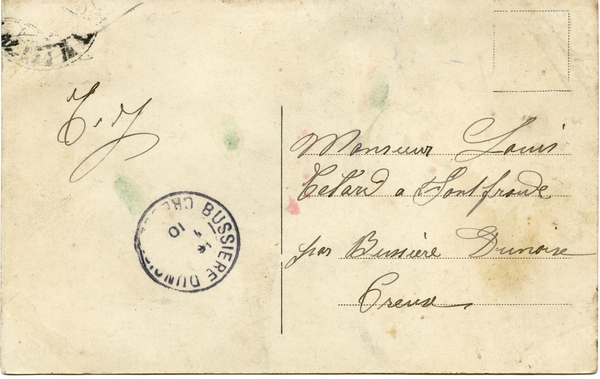 T. J
Monsieur Louis
à Fontfroide
par Bussière Dunoise
Creuse
BUSSIERE DUNOISE
CREUSE
10